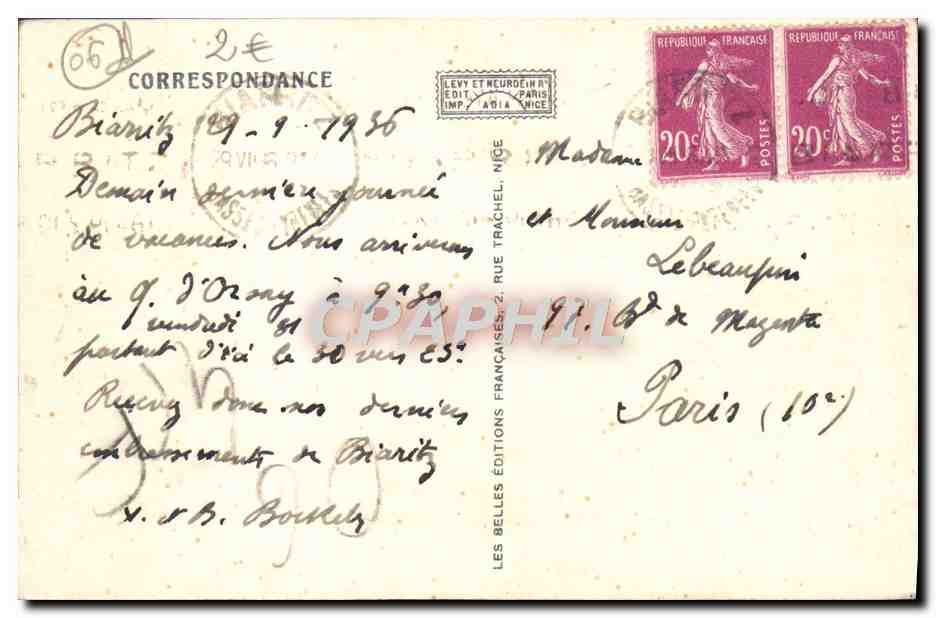 06
2€
CORRESPONDANCE
LEVY ET NEURDEIN RS
EDIT. PARIS
IMP. ADIA NICE
REPUBLIQUE FRANÇAISE
20c
POSTES
REPUBLIQUE FRANÇAISE
20c
POSTES
Biarritz 29-9-1936
Demain dernière journée
de vacances. Nous arriverons
au q. d'Orsay à 9h30,
vendredi 31
partant d'ici le 30 vers 23h
Recevez donc nos derniers
embrassements de Biarritz
et B.
LES BELLES ÉDITIONS FRANÇAISES, 2, RUE TRACHEL, NICE
Madame
et Monsieur
Lebeaupin
97. Bd de Magenta
Paris (10e)
CPAPHIL